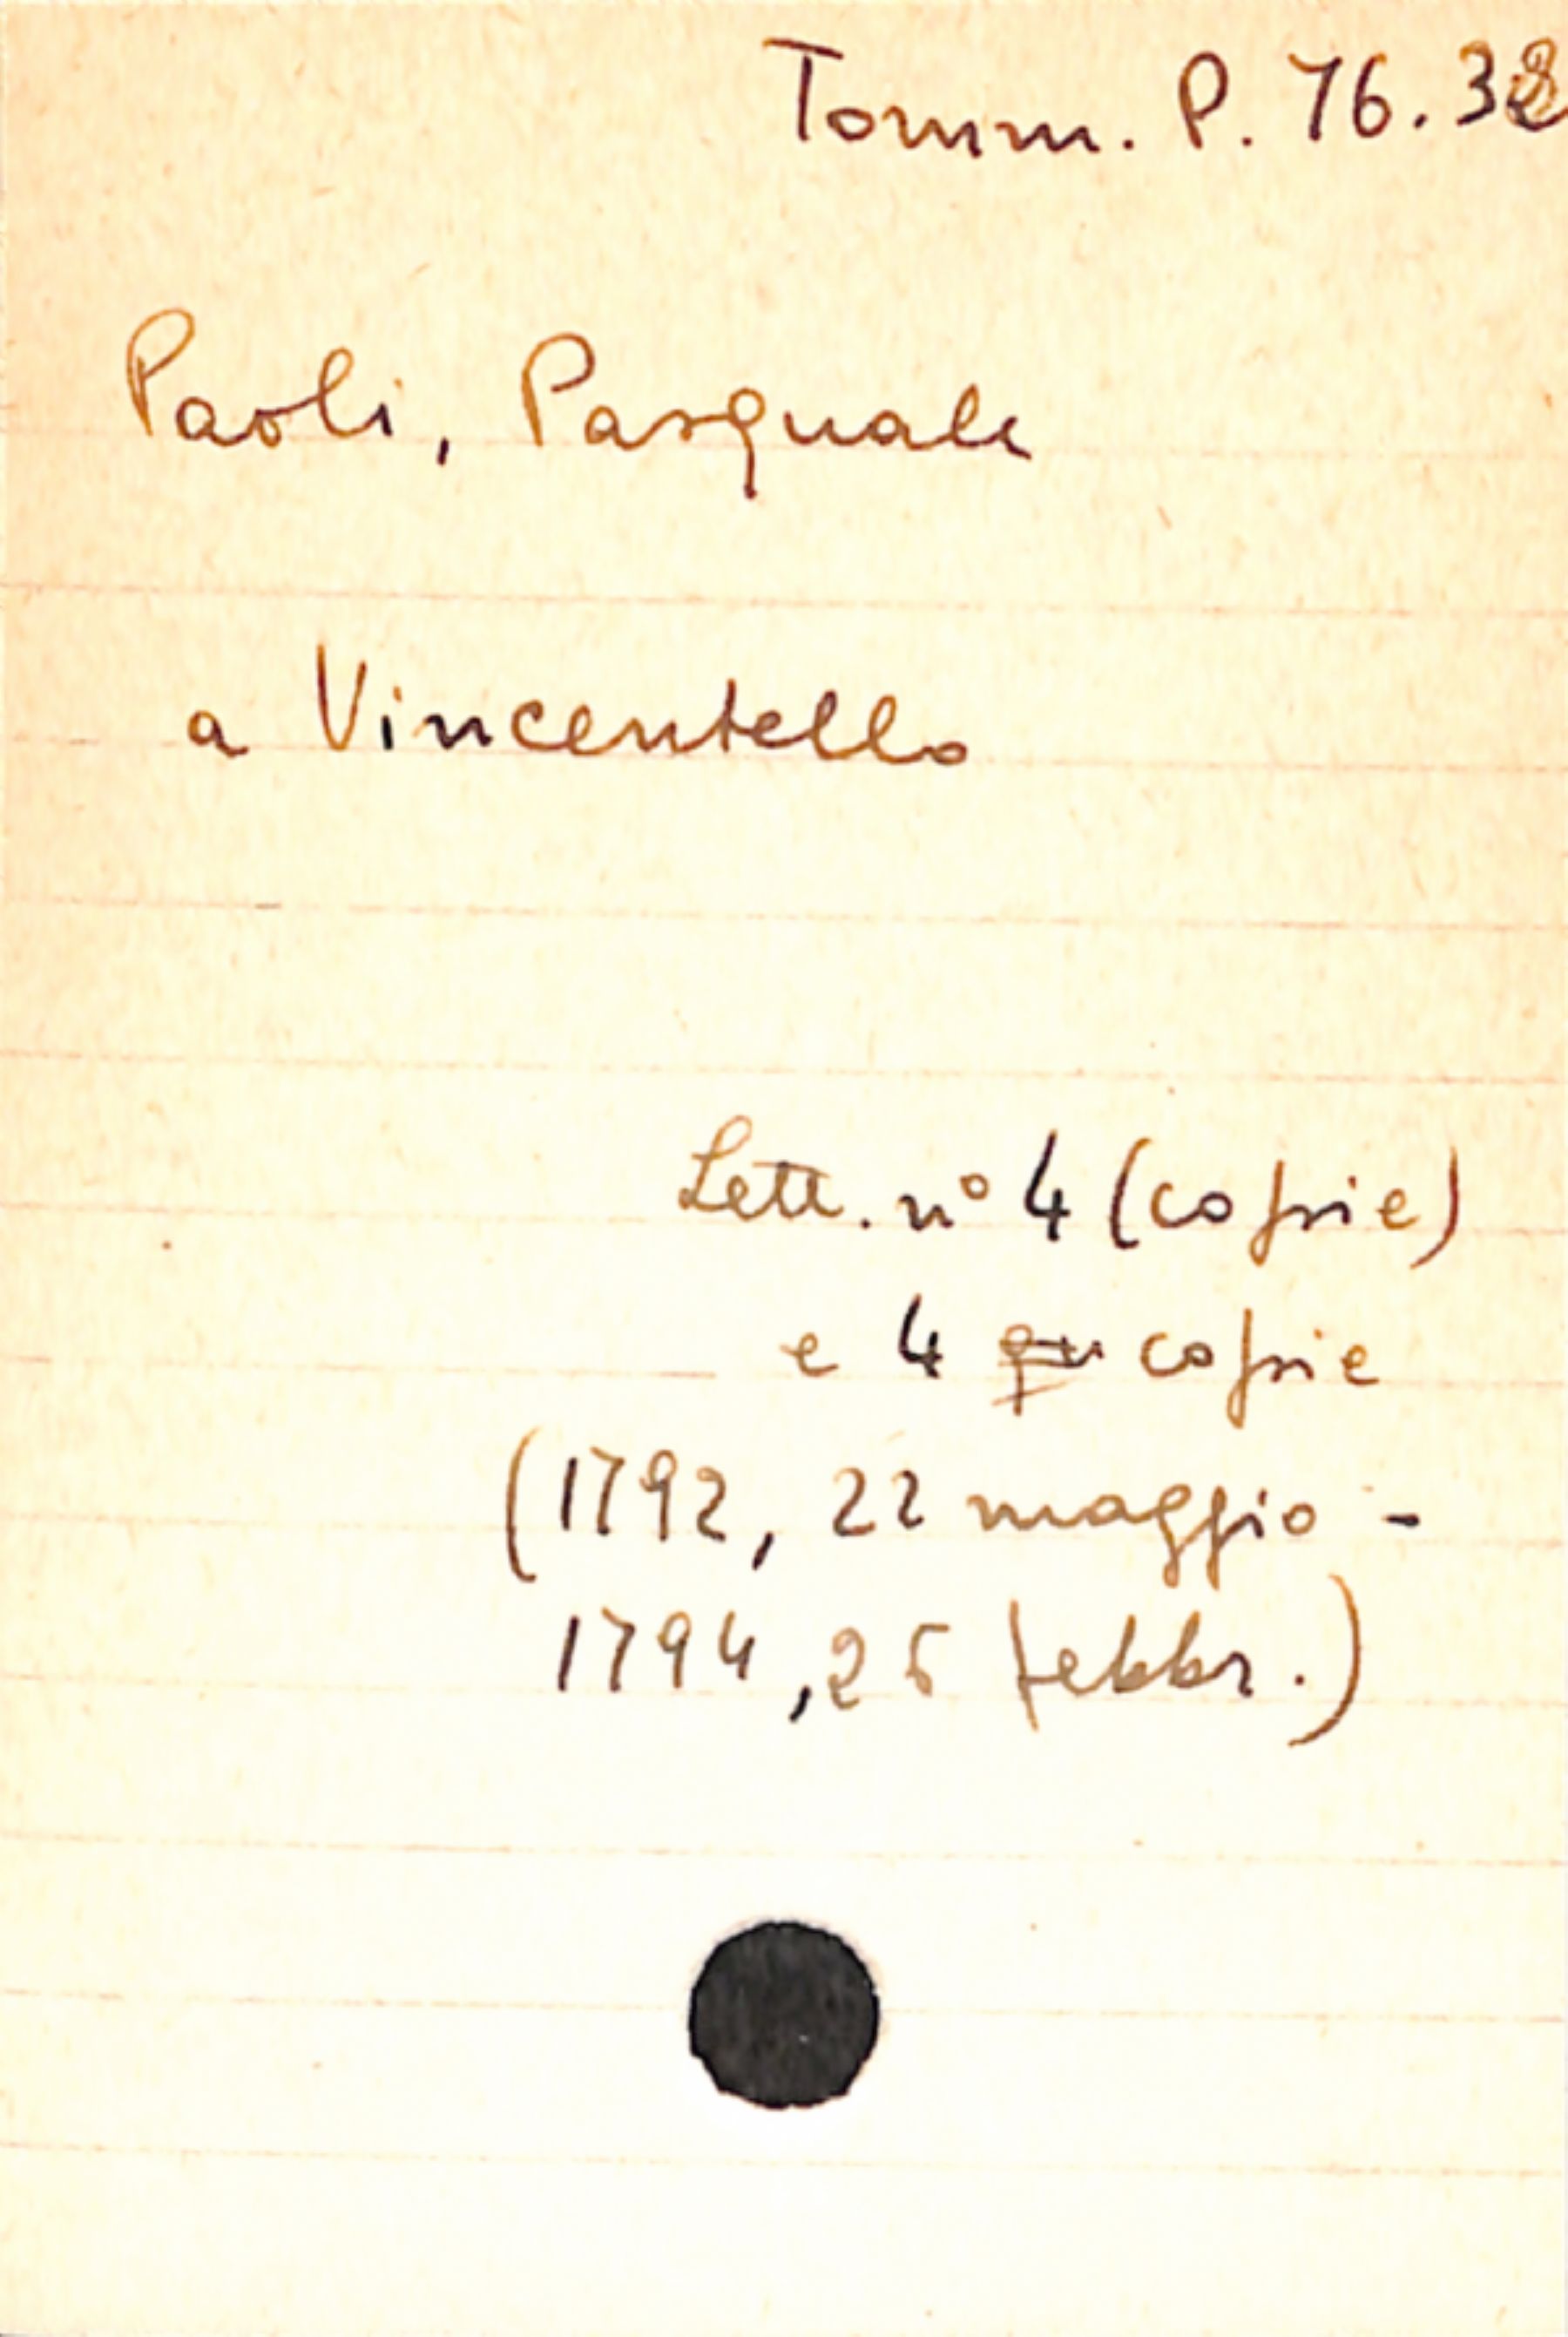 Tomm. P. 76.38
Paoli, Pasquale
a Vincentello
Lett. nº 4 (copie)
e 4 copie
(1792, 22 maggio -
1794, 25 febbr.)